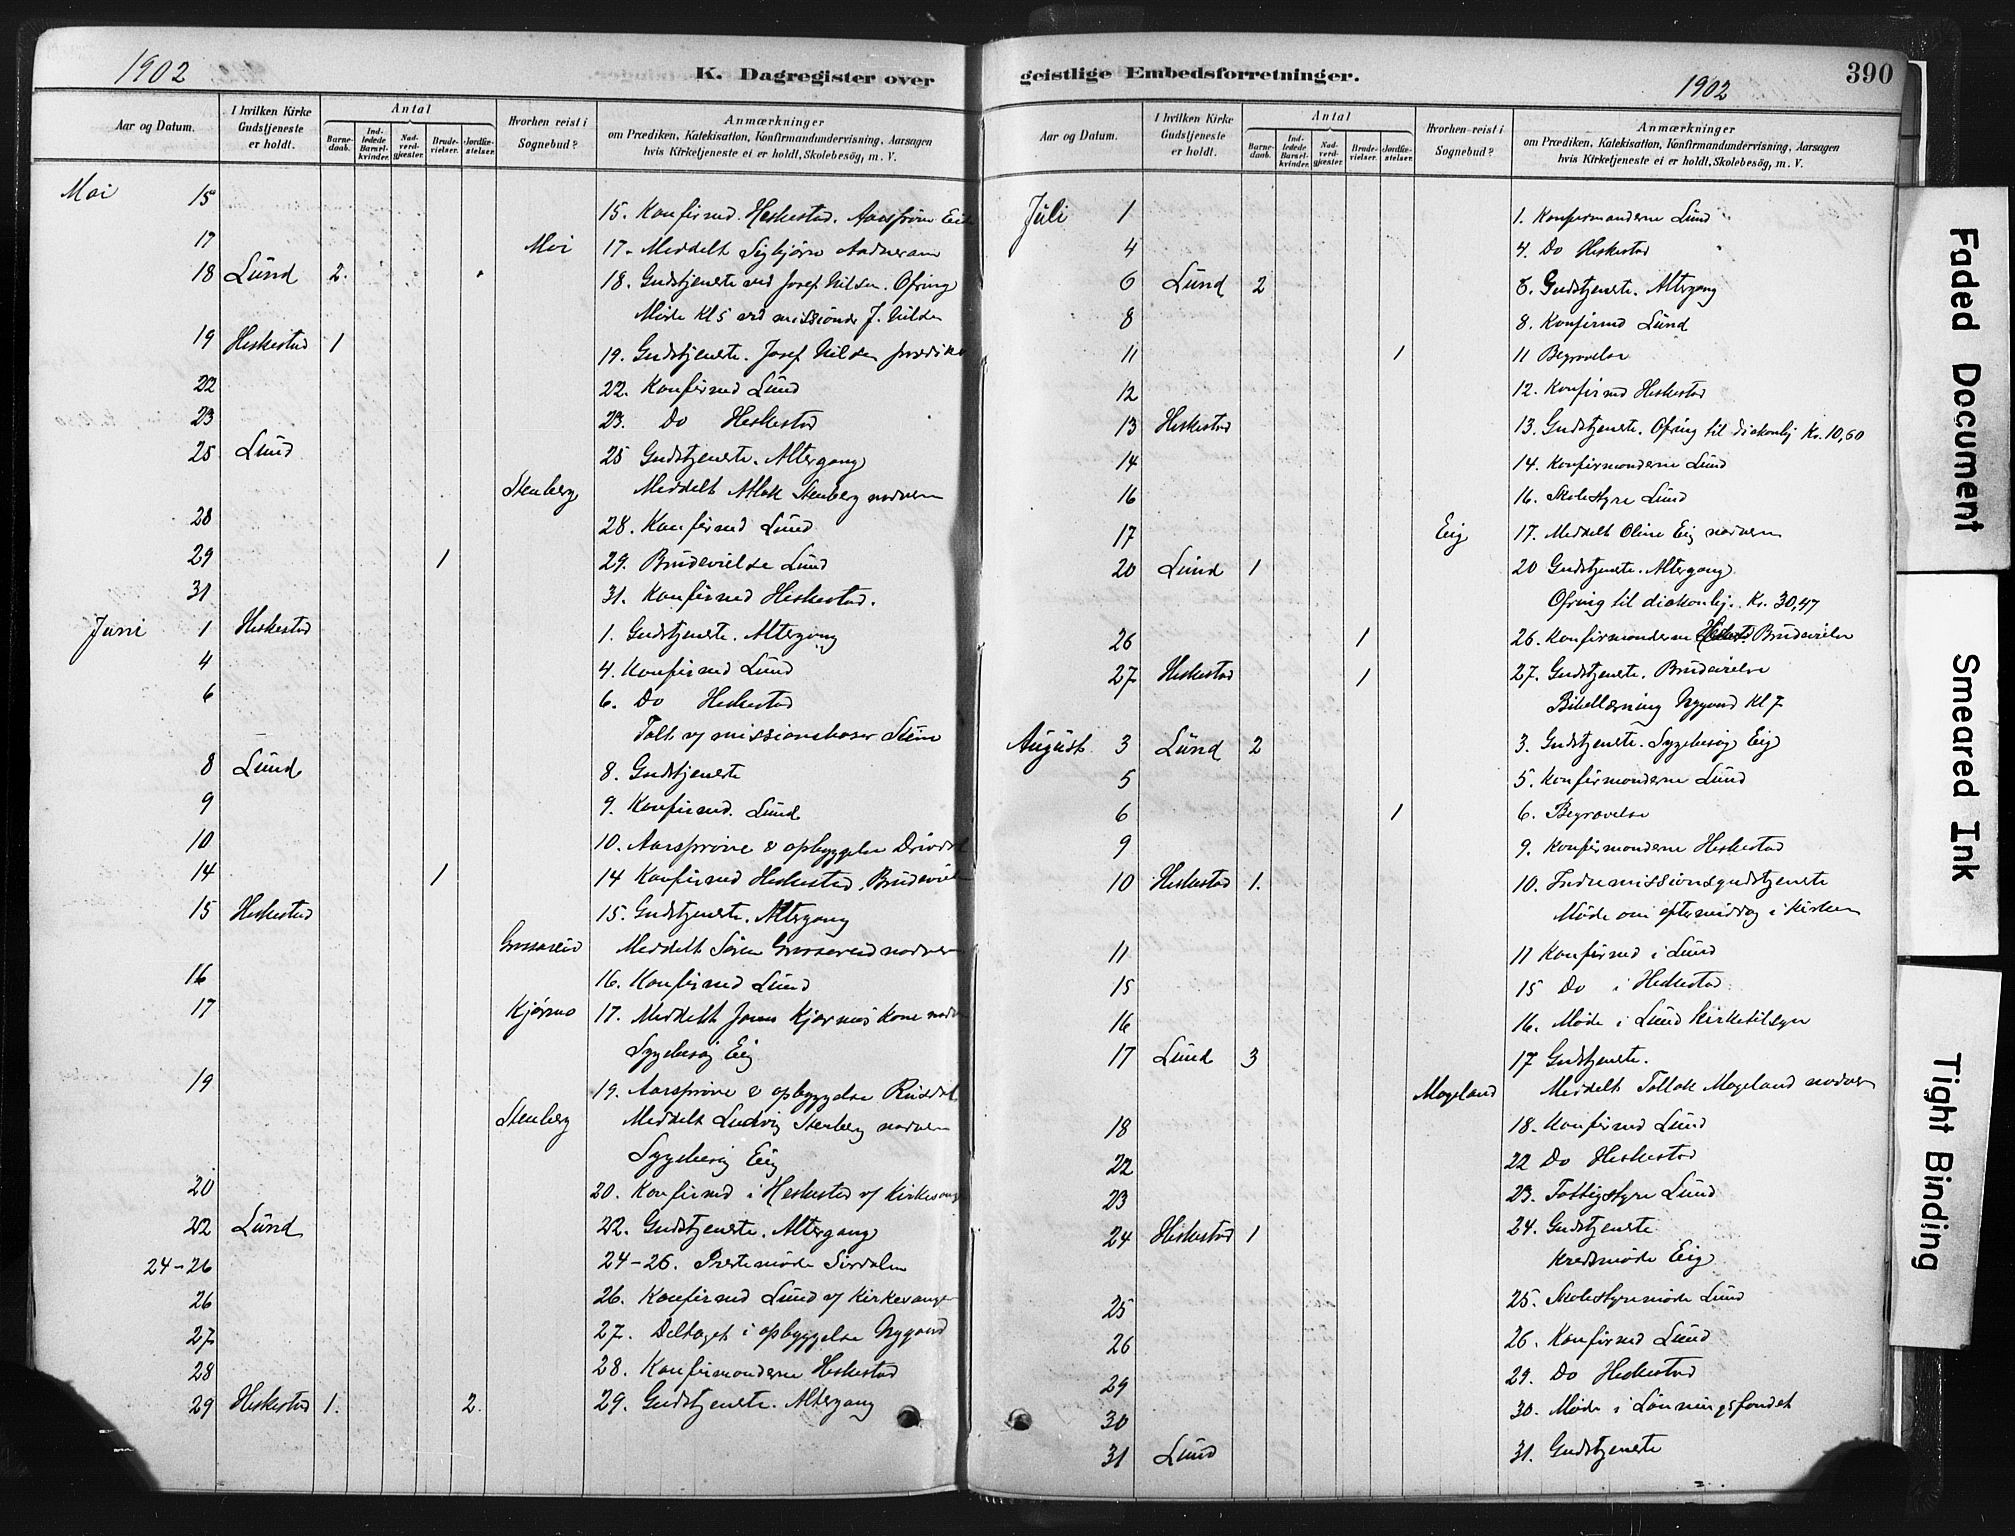 1902
K. Dagregister over
Aar og Datum.
I hvilken Kirke Gudstjeneste er holdt.
Antal
Barne-daab.
Ind-ledede Barsel-kvinder.
Nad-verd-gjester.
Brude-vielser.
Jordfæ-stelser.
Hvorhen reist i Sognebud?
Anmærkninger
om Prædiken, Katekisation, Konfirmandundervisning, Aarsagen
hvis Kirketjeneste ei er holdt, Skolebesøg, m. V.
Mai 15 15. Konfirmd. Heskestad. Aarsprøve Eide
17 Moi 17. Meddelt Sigbjørn Aadneram
18 Lund 2. 18. Gudstjeneste ved Josef Nilsen. Ofring
Møde Kl 5 ved missionær J. Nilsen
19 Heskestad 1 19. Gudstjeneste. Josef Nilsen prædike
22 22. Konfirmd Lund
23 23. Do Heskestad
25 Lund 25 Gudstjeneste. Altergang
Stenberg Meddelt Atlak Stenberg nadvern
28 28. Konfirmd Lund
29 1 29. Brudevielse Lund
31 31. Konfirmd Heskestad.
Juni 1 Heskestad 1. Gudstjeneste. Altergang
4 4. Konfirmd Lund
6 6. Do Heskestad
Talt v/ missionskaser
8 Lund 8. Gudstjeneste
9 9. Konfirmd. Lund
10 10. Aarsprøve & opbyggelse Drivdal
14 1 14 Konfirmd Heskestad. Brudeviel
15 Heskestad 15. Gudstjeneste. Altergang
Grøsareid Meddelt Søren Grøsareid nadver
16 16. Konfirmd Lund
17 Kjørmo 17. Meddelt Jonas Kjørmos kone nadv
Sygebesøg Eig
19 19. Aarsprøve & opbyggelse Rusdal
Stenberg Meddelt Ludvig Stenberg nadvern
Sygebesøg Eig
20 20. Konfirmd i Heskestad v/ Kirkesang
22 Lund 22. Gudstjeneste. Altergang
24-26 24-26. Prestemøde Sirdalen
26 26. Konfirmd Lund v/ Kirkesanger
27 27. Deltaget i opbyggelse Nygaard
28 28. Konfirmanderne Heskestad
29 Heskestad 1. 2. 29. Gudstjeneste. Altergang
geistlige Embedsforretninger.
1902
390
Aar og Datum.
I hvilken Kirke Gudstjeneste er holdt.
Antal
Barne-daab.
Ind-ledede Barsel-kvinder.
Nad-verd-gjester.
Brude-vielser.
Jordfæ-stelser.
Hvorhen reist i Sognebud?
Anmærkninger
om Prædiken, Katekisation, Konfirmandundervisning, Aarsagen
hvis Kirketjeneste ei er holdt, Skolebesøg, m. V.
Juli 1 1. Konfirmanderne Lund
4 4. Do Heskestad
6 Lund 2 6. Gudstjeneste. Altergang
8 8. Konfirmd Lund
11 1 11 Begravelse
12 12. Konfirmd Heskestad
13 Heskestad 13. Gudstjeneste. Ofring til diakonhj Kr. 10,60
14 14. Konfirmanderne Lund
16 16. Skolestyre Lund
17 Eig 17. Meddelt Oline Eig nadvern
20 Lund 1 20 Gudstjeneste. Altergang
Ofring til diakonhj. Kr. 30,47
26 1 26. Konfirmanderne Heskest. Brudevielse
27 Heskestad 1 27. Gudstjeneste. Brudevielse
Bibellæsning Nygaard Kl 7
August 3 Lund 2 3. Gudstjeneste. Sygebesøg Eig
5 5. Konfirmanderne Lund
6 1 6. Begravelse
9 9. Konfirmanderne Heskestad
10 Heskestad 1. 10. Indremissionsgudstjeneste
Møde om eftermiddag i kirken
11 11 Konfirmd i Lund
15 15 Do i Heskestad
16 16. Møde i Lund kirketilsyn
17 Lund 3 17 Gudstjeneste.
Mogeland Meddelt Tollak Mogeland nadver
18 18. Konfirmd Lund
22 22 Do Heskestad
23 23. Fattigstyre Lund
24 Heskestad 1 24. Gudstjeneste
Kredsmøde Eig
25 25. Skolestyremøde Lund
26 26. Konfirmd Lund
29 29. Do Heskestad
30 30. Møde i Lønningsfondet
31 Lund 31. Gudstjeneste
Faded Document
Smeared Ink
Tight Binding